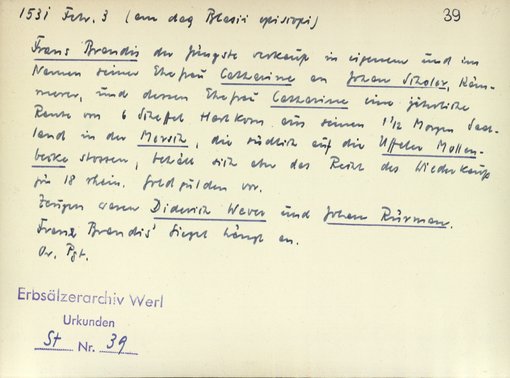 1531 Febr. 3 (am dag Blasii episcopi)
39
Frans Brandis der Jüngste verkauft in eigenem und im
Namen seiner Ehefrau Catharine an Johan Scholer, Käm-
merer, und dessen Ehefrau Catharine eine jährliche
Rente von 6 Scheffel Hartkorn aus seinen 1 1/2 Morgen Saat-
land in der Marsch, die südlich auf die Uffeler Mollen-
becke stossen, behält sich aber das Recht des Wiederkaufs
für 18 rhein. Goldgulden vor.
Zeugen waren Diderich Wever und Johan Rürman.
Franz Brandis' Siegel hängt an.
Or. Pgt.
Erbsälzerarchiv Werl
Urkunden
St Nr. 39